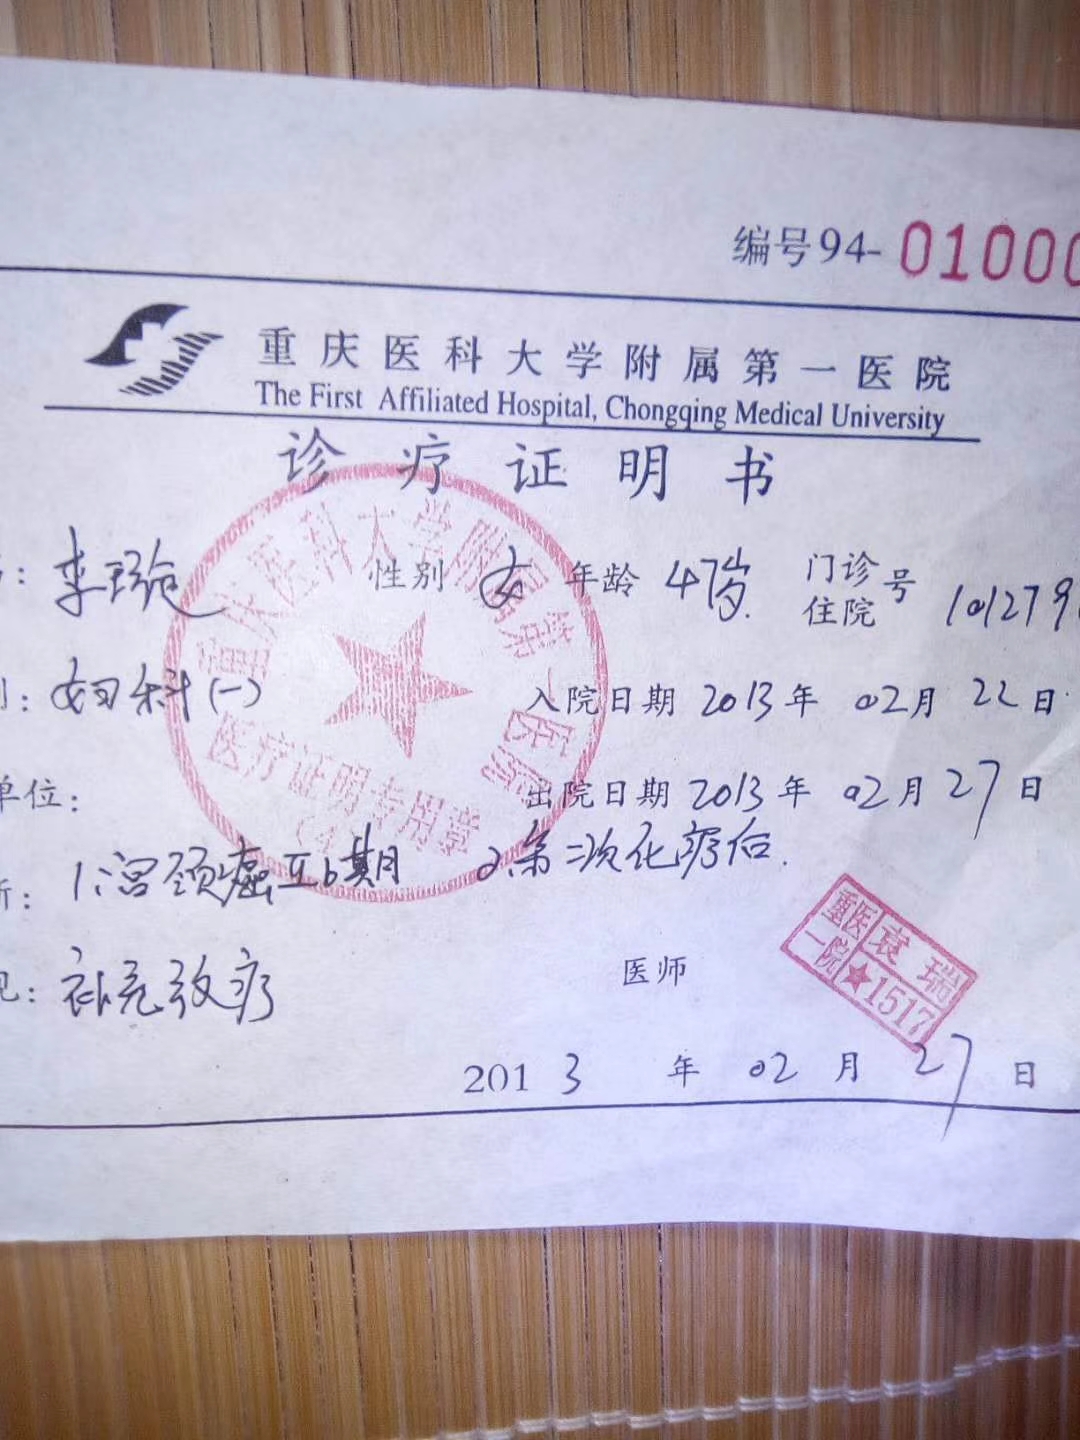 编号94-01000
重庆医科大学附属第一医院
The First Affiliated Hospital, Chongqing Medical University
诊疗证明书
: 李 性别 女 年龄 47岁. 门诊住院号 101279
: 妇科(一) 入院日期 2013年 02月 22日
单位: 出院日期 2013年 02月 27日
断: 1.宫颈癌Ib期 2.第二次化疗后.
见: 补充放疗 医师
2013年 02月 27日
重庆医科大学附属第一医院
医疗证明专用章
重医一院 袁瑞 ★1517